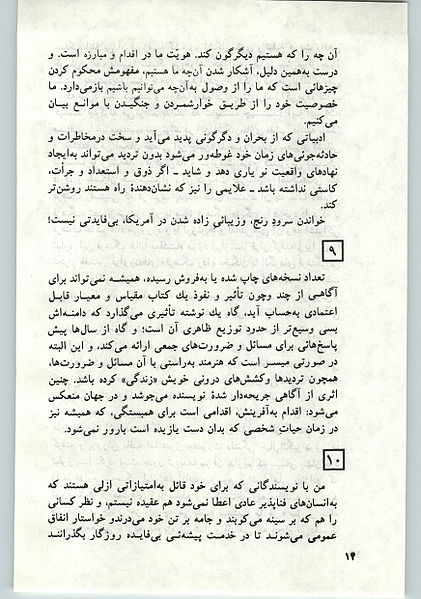 آن چه را که هستیم دیگرگون کند. هویّت ما در اقدام و مبارزه است. و
درست به‌همین دلیل، آشکار شدن آن‌چه ما هستیم، مفهومش محکوم کردن
چیزهائی است که ما را از وصول به‌آن‌چه می‌توانیم باشیم بازمی‌دارد. ما
خصوصیت خود را از طریـق خوارشمـردن و جنگیـدن با موانـع بیـان
می‌کنیم.
ادبیاتی که از بحران و دگرگونی پدید می‌آید و سخت درمخاطرات و
حادثه‌جوئی‌های زمان خود غوطه‌ور می‌شود بدون تردید می‌تواند به‌ایجاد
نهادهای واقعیت نو یاری دهد و شاید ـ اگر ذوق و استعداد و جرأت،
کاستی نداشته باشد ـ علایمی را نیز که نشان‌دهندهٔ راه هستند روشن‌تر
کند.
خواندن سرودِ رنج، وزیبائی زاده شدن در آمریکا، بی‌فایدتی نیست!
۹
تعداد نسخه‌های چاپ شده یا به‌فروش رسیده، همیشـه نمی‌تواند برای
آگاهـی از چند وچون تأثیر و نفوذ یك کتاب مقیاس و معیـار قابـل
اعتمادی به‌حساب آید، گاه یك نوشته تأثیری می‌گذارد که دامنـه‌اش
بسی وسیع‌تر از حدود توزیع ظاهری آن است؛ و گاه از سال‌ها پیش
پاسخ‌هائی برای مسائل و ضرورت‌های جمعی ارائه می‌کند، و این البته
در صورتی میسـر است که هنرمند به‌راستی با آن مسائل و ضرورت‌ها،
همچون تردیدها وکشش‌های درونی خویش «زندگی» کرده باشد. چنین
اثری از آگاهی جریحه‌دار شدهٔ نویسنده می‌جوشد و در جهان منعکس
می‌شود: اقدام به‌آفرینش، اقدامی است برای همبستگی، که همیشه نیز
در زمان حیاتِ شخصی که بدان دست یازیده است بارور نمی‌شود.
۱۰
من با نویسندگانی که برای خود قائل به‌امتیازاتی ازلی هستند که
به‌انسان‌های فناپذیر عادی اعطا نمی‌شود هم عقیده نیستم، و نظر کسانی
را هم که بر سینه می‌کوبند و جامه بر تن خود می‌درندو خواستار انفاق
عمومی می‌شونـد تا در خدمت پیشه‌ئـی بی‌فایـده روزگار بگذراننـد
۱۴